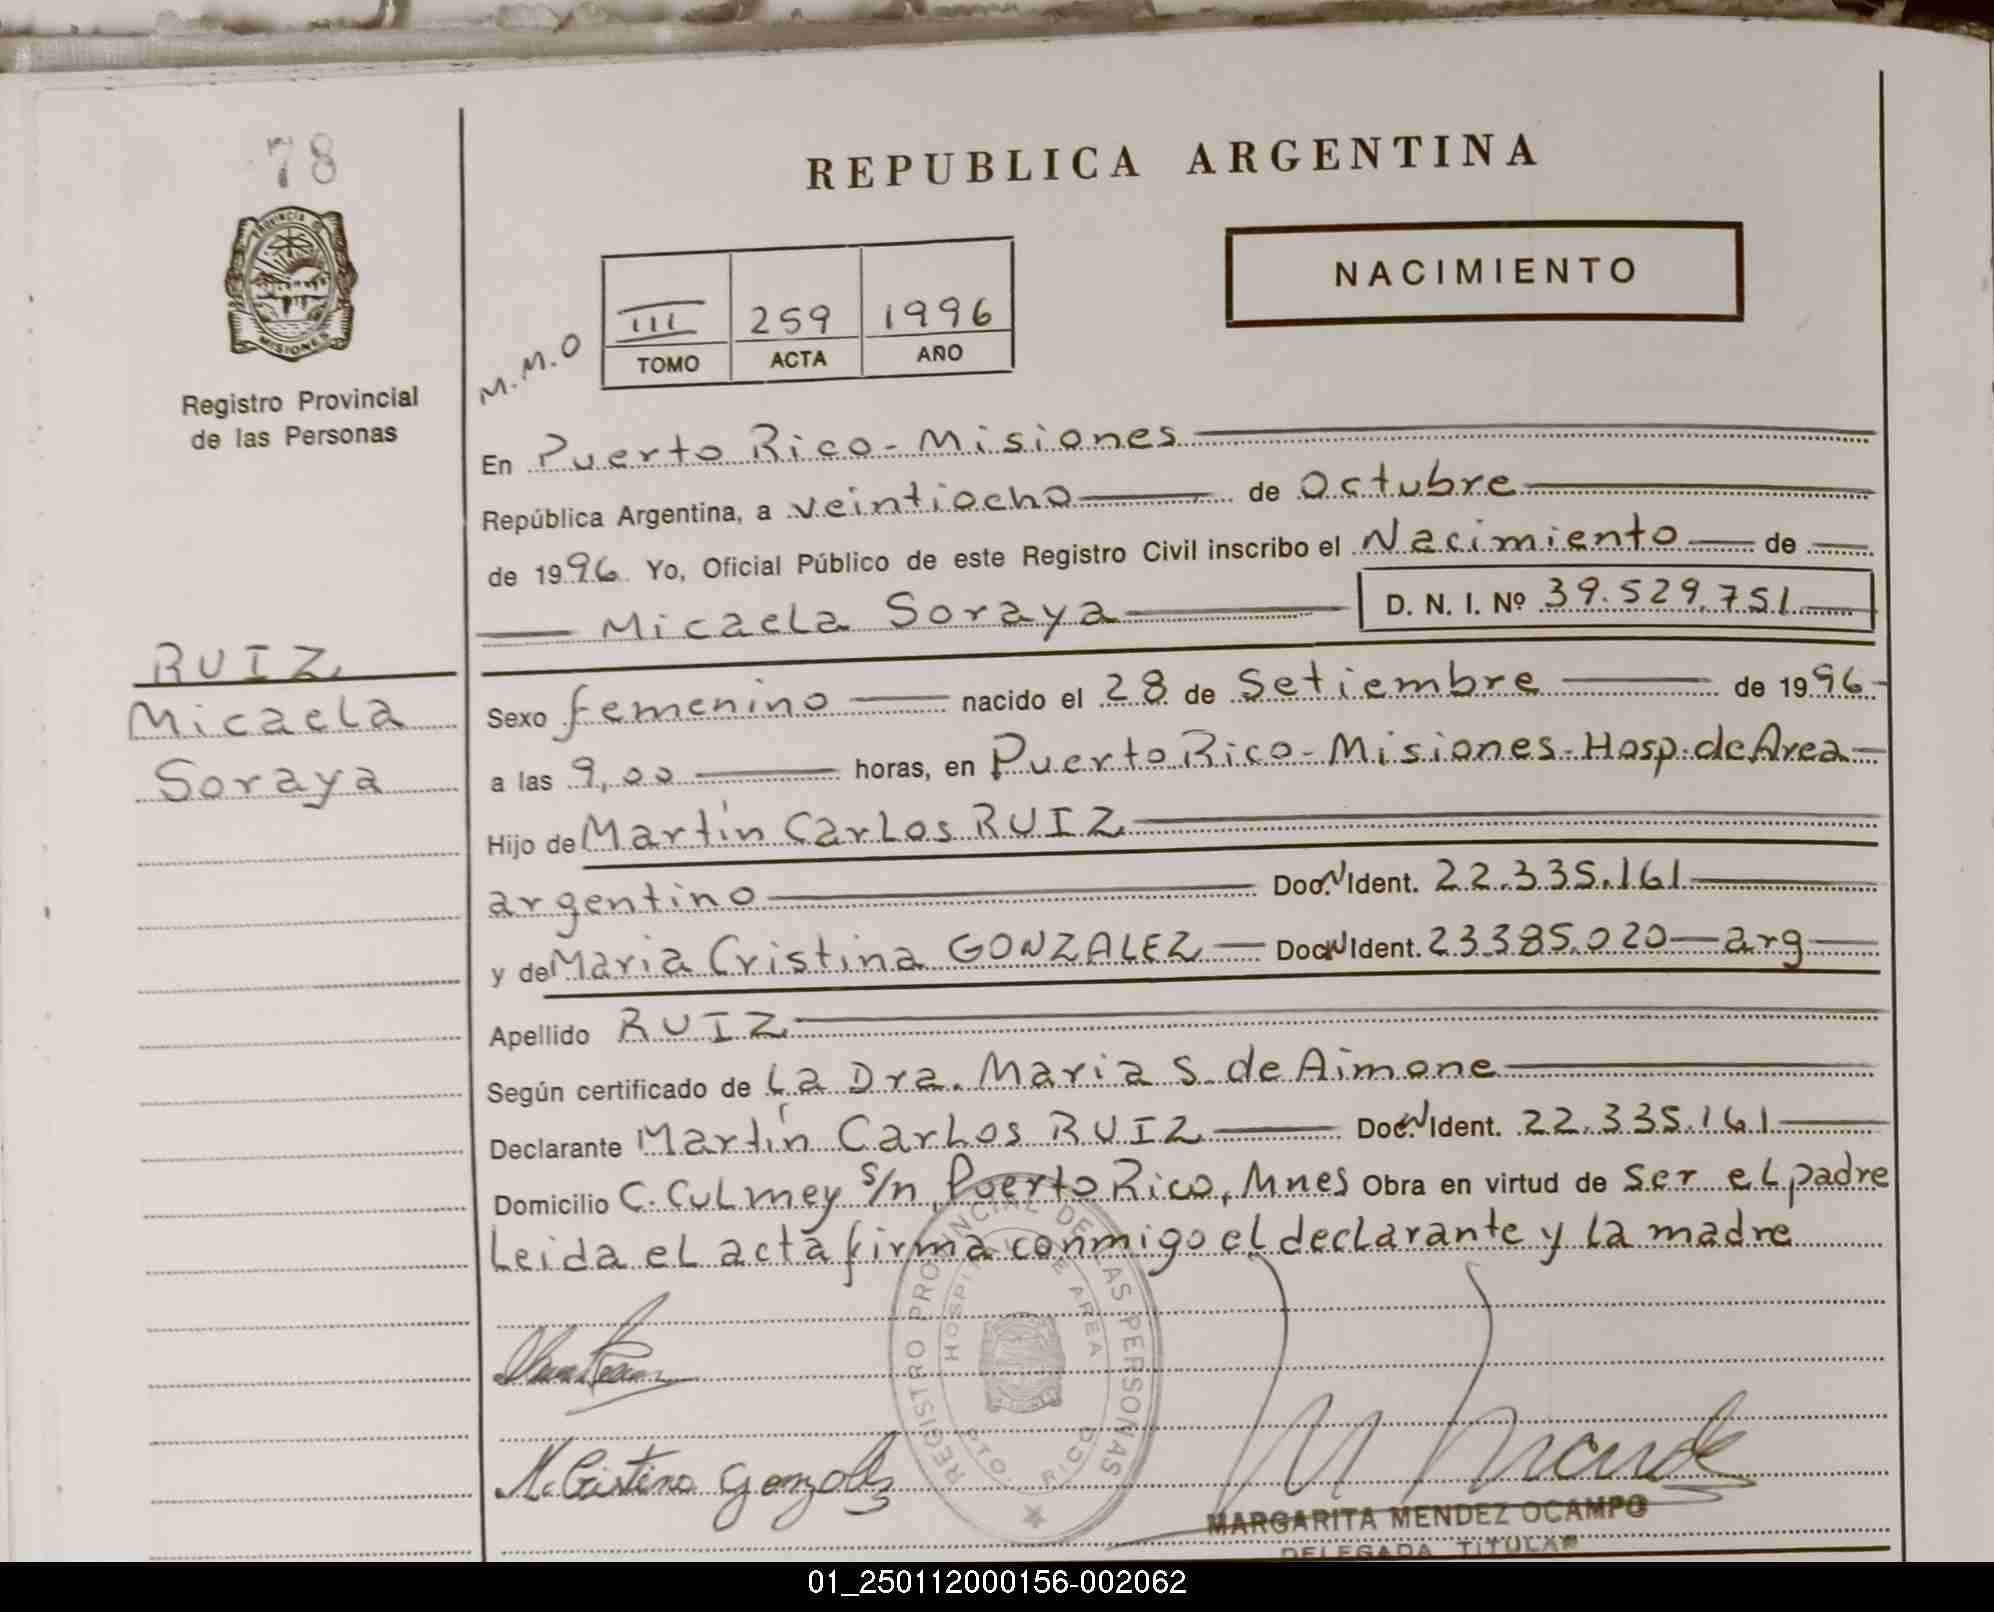 78
REPUBLICA ARGENTINA
PROVINCIA D
MISIONES
NACIMIENTO
M.M.O
III 259 1996
TOMO ACTA AÑO
Registro Provincial
de las Personas
En Puerto Rico - Misiones
República Argentina, a veintiocho de Octubre
de 1996 Yo, Oficial Público de este Registro Civil inscribo el Nacimiento de
Micaela Soraya D. N. I. Nº 39.529.751
RUIZ
Micaela
Soraya
Sexo femenino nacido el 28 de Setiembre de 1996
a las 9,00 horas, en Puerto Rico - Misiones - Hosp. de Area
Hijo de Martín Carlos RUIZ
argentino Doc. N Ident. 22.335.161
y de Maria Cristina GONZALEZ Doc. N Ident. 23385.020 arg
Apellido RUIZ
Según certificado de La Dra. Maria S. de Aimone
Declarante Martín Carlos RUIZ Doc. N Ident. 22.335.161
Domicilio C. Culmey s/n, Puerto Rico, Mnes Obra en virtud de ser el padre
Leida el acta firma conmigo el declarante y la madre
REGISTRO PROVINCIAL DE LAS PERSONAS
HOSPITAL DE AREA
PTO. RICO
M. Cristina Gonzalez
MARGARITA MENDEZ OCAMPO
DELEGADA TITULAR
01_250112000156-002062